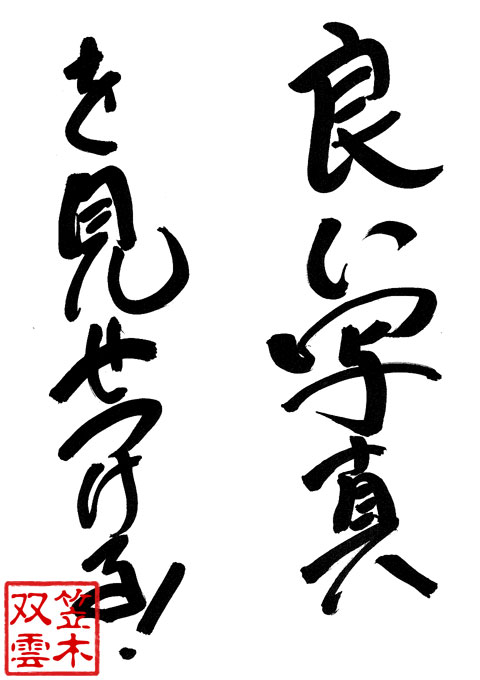 良い写真
を見せつける!
笠木
双雲